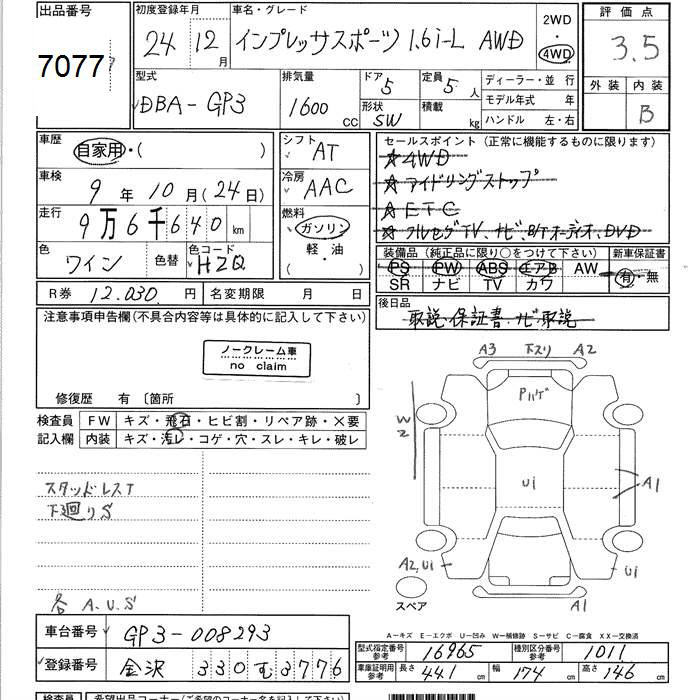 出品番号
7077
初度登録年月
24年12月
車名・グレード
インプレッサスポーツ 1.6i-L AWD
2WD・4WD
評価点
3.5
外装 内装
B
型式
DBA-GP3
排気量
1600 CC
ドア 5
形状 SW
定員 5人
積載 kg
ディーラー・並行
モデル年式 年
ハンドル 左・右
車歴
自家用・( )
車検
9年10月(24日)
走行
9万6千640km
色
ワイン
色替
色コード
HZQ
シフト
AT
冷房
AAC
燃料
ガソリン
軽・油
R券 12,030円
名変期限 月 日
セールスポイント (正常に機能するものに限ります)
☆4WD
☆アイドリングストップ
☆ETC
☆フルセグTV、ナビ、B/Tオーディオ、DVD
装備品 (純正品に限り○をつけて下さい)
PS PW ABS エアB AW
SR ナビ TV カワ
新車保証書
有・無
後日品
取説・保証書・ナビ取説
注意事項申告欄(不具合内容等は具体的に記入して下さい)
ノークレーム車
no claim
修復歴 有 〔箇所 〕
検査員
記入欄
FW キズ・飛石・ヒビ割・リペア跡・×要
内装 キズ・汚レ・コゲ・穴・スレ・キレ・破レ
スタッドレスT
下廻りS
各 A.U.S
A3 下スリ A2
Pハゲ
W2
Ui
A1
A2,Ui
Ui
A1
スペア
A-キズ E-エクボ U-凹み W-補修跡 S-サビ C-腐食 XX-交換済
車台番号
GP3-008293
登録番号
金沢 330 む 3776
型式指定番号
参考
16965
種別区分番号
参考
1011
車庫証明用
参考
長さ 441 cm
幅 174 cm
高さ 146 cm
検査員
希望出品コーナー(ご希望のコーナー名を記入下さい)